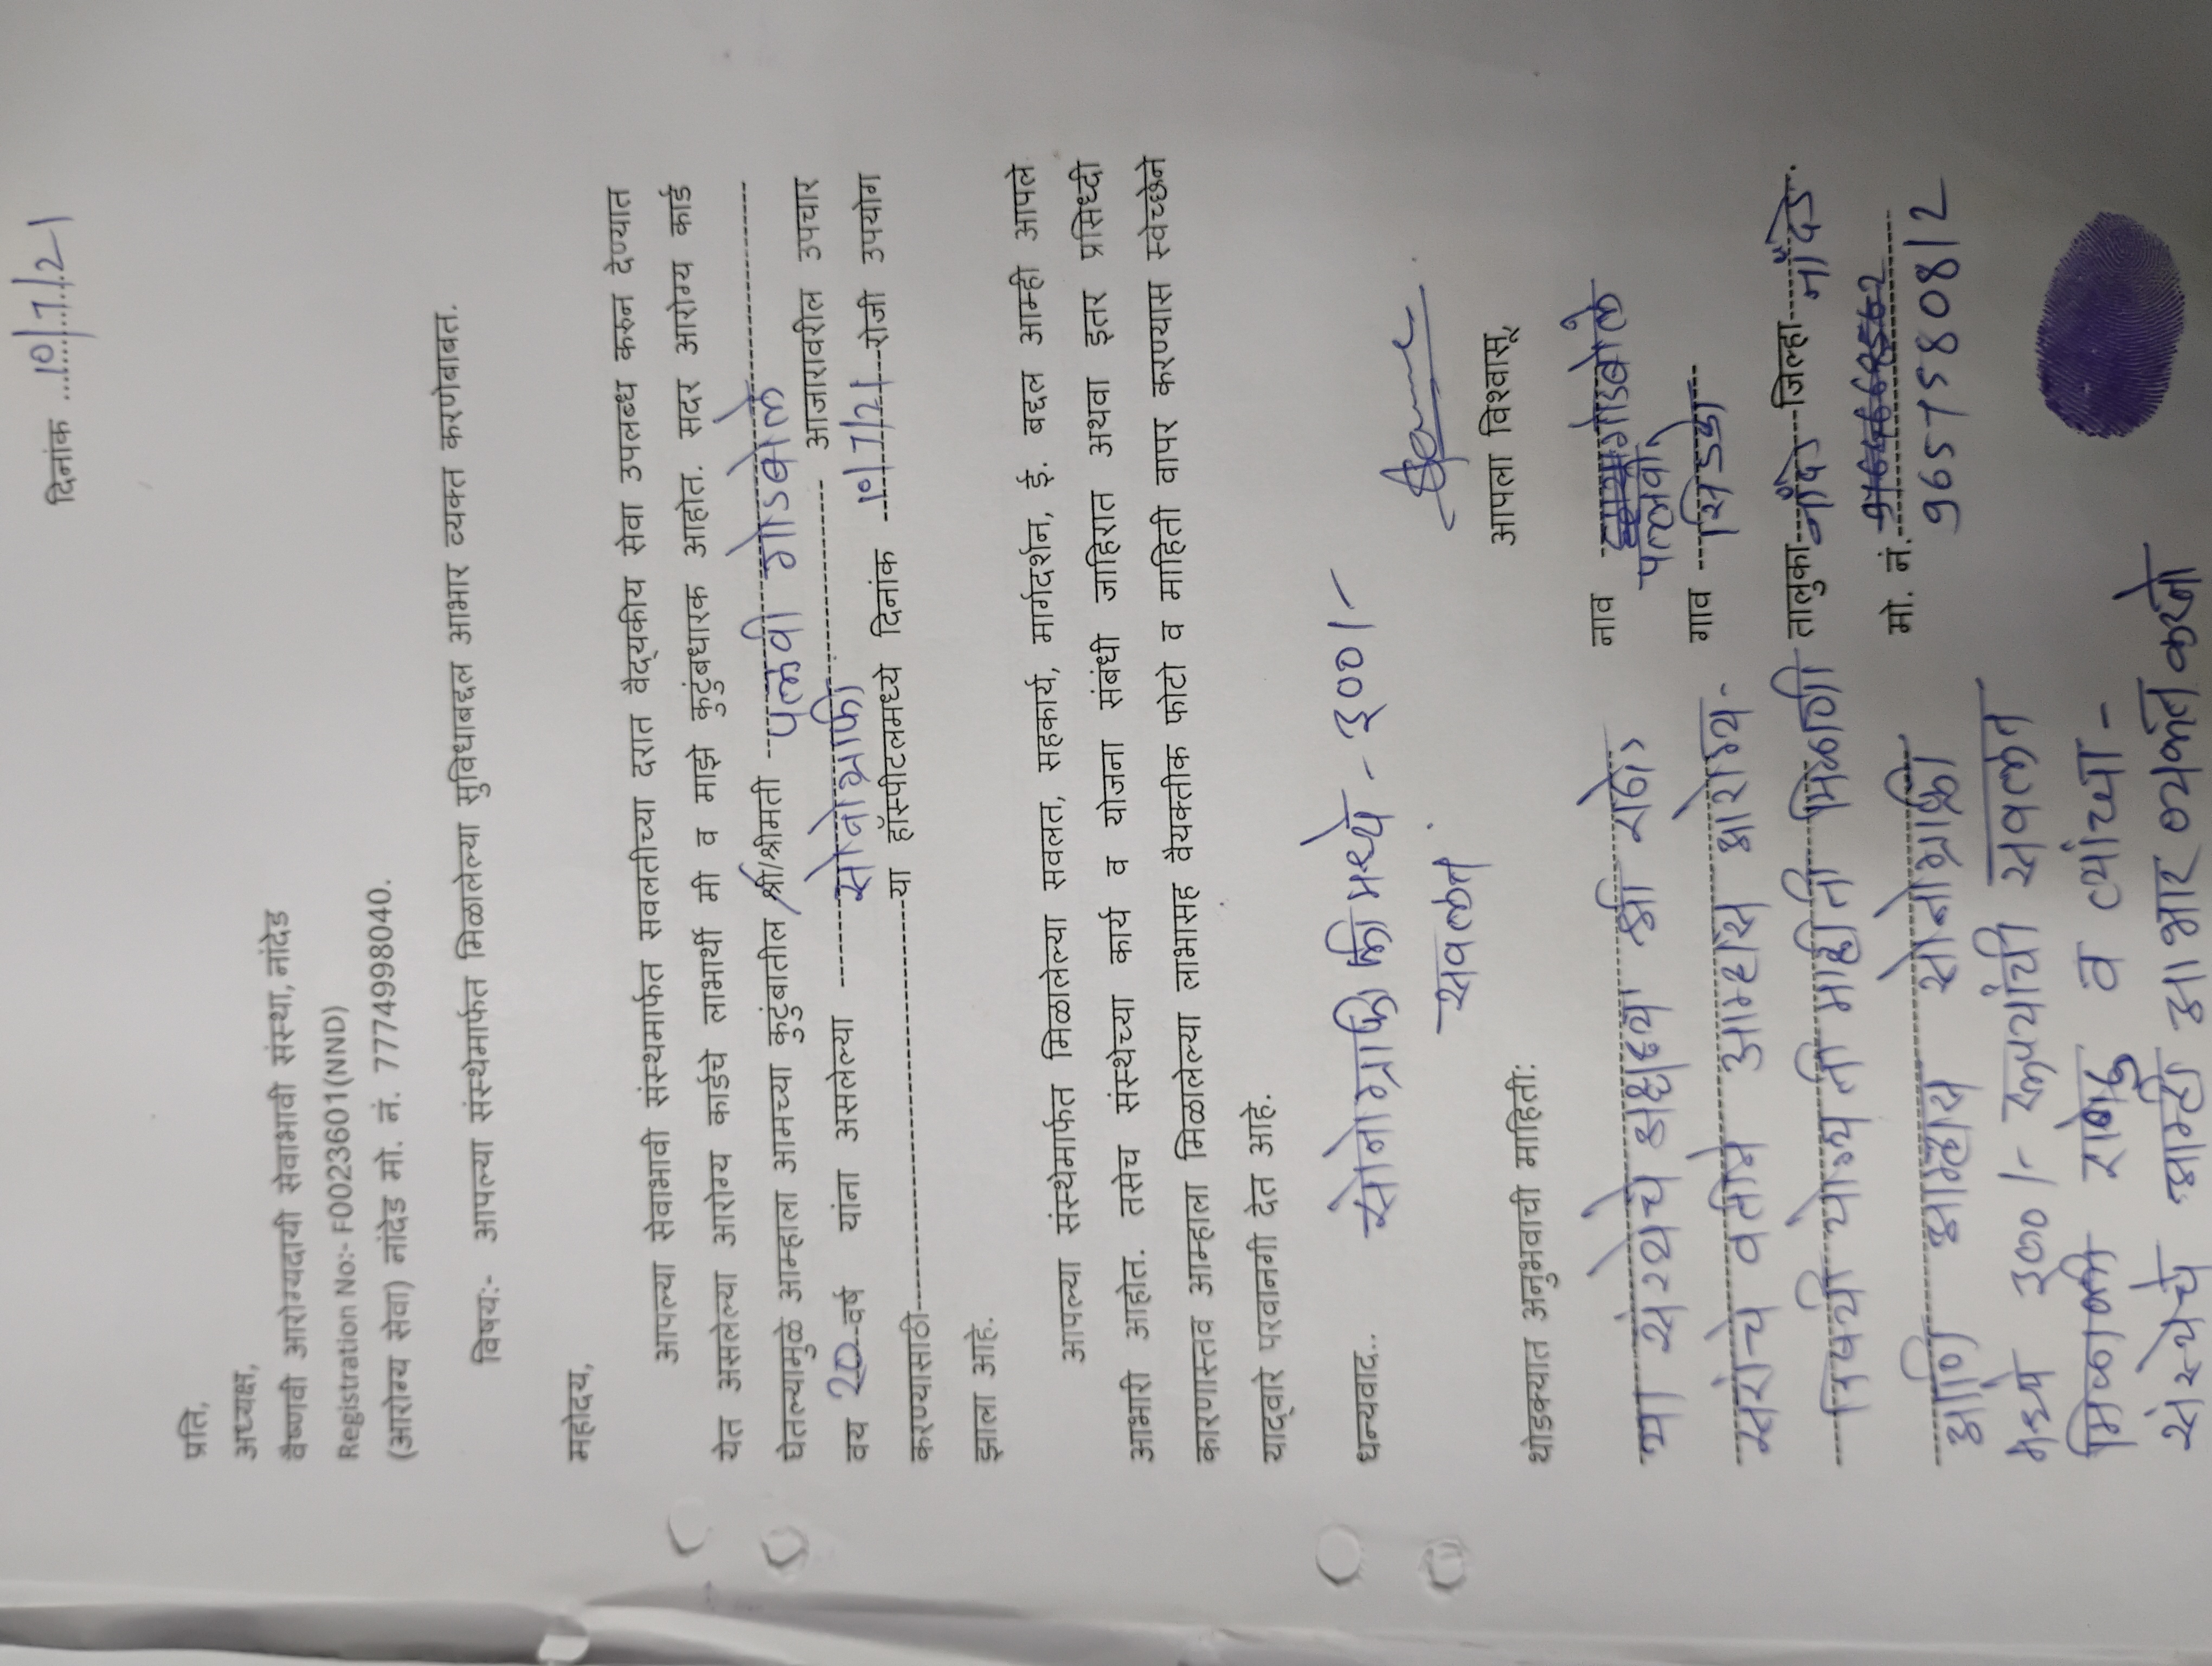 दिनांक ...10/7/21
प्रति,
अध्यक्ष,
वैष्णवी आरोग्यदायी सेवाभावी संस्था, नांदेड
Registration No:- F0023601(NND)
(आरोग्य सेवा) नांदेड मो. नं. 7774998040.
विषय:- आपल्या संस्थेमार्फत मिळालेल्या सुविधाबद्दल आभार व्यक्त करणेबाबत.
महोदय,
आपल्या सेवाभावी संस्थमार्फत सवलतीच्या दरात वैद्यकीय सेवा उपलब्ध करुन देण्यात
येत असलेल्या आरोग्य कार्डचे लाभार्थी मी व माझे कुटुंबधारक आहोत. सदर आरोग्य कार्ड
घेतल्यामुळे आम्हाला आमच्या कुटुंबातील श्री/श्रीमती पल्लवी गोडबोले
वय 20 वर्ष यांना असलेल्या सोनोग्राफी आजारावरील उपचार
करण्यासाठी या हॉस्पीटलमध्ये दिनांक 10/7/21 रोजी उपयोग
झाला आहे.
आपल्या संस्थेमार्फत मिळालेल्या सवलत, सहकार्य, मार्गदर्शन, ई. बद्दल आम्ही आपले
आभारी आहोत. तसेच संस्थेच्या कार्य व योजना संबंधी जाहिरात अथवा इतर प्रसिध्दी
कारणास्तव आम्हाला मिळालेल्या लाभासह वैयक्तीक फोटो व माहिती वापर करण्यास स्वेच्छेने
याद्वारे परवानगी देत आहे.
धन्यवाद.. सोनोग्राफी फी मध्ये - ३००/-
सवलत
आपला विश्वासू,
थोडक्यात अनुभवाची माहिती:
नाव गोडबोले
पल्लवी
गाव
तालुका नांदेड जिल्हा नांदेड.
मो. नं.
9657580812
मा संस्थेचे अध्यक्ष श्री राठोड
सरांचे वतीने आम्हास आरोग्य-
विषयी योग्य ती माहीती मिळाली
आणि आम्हास सोनोग्राफी
मध्ये ३००/- रूपयांची सवलत
मिळाली व त्यांच्या -
संस्थेचे आम्ही आभार व्यक्त करतो